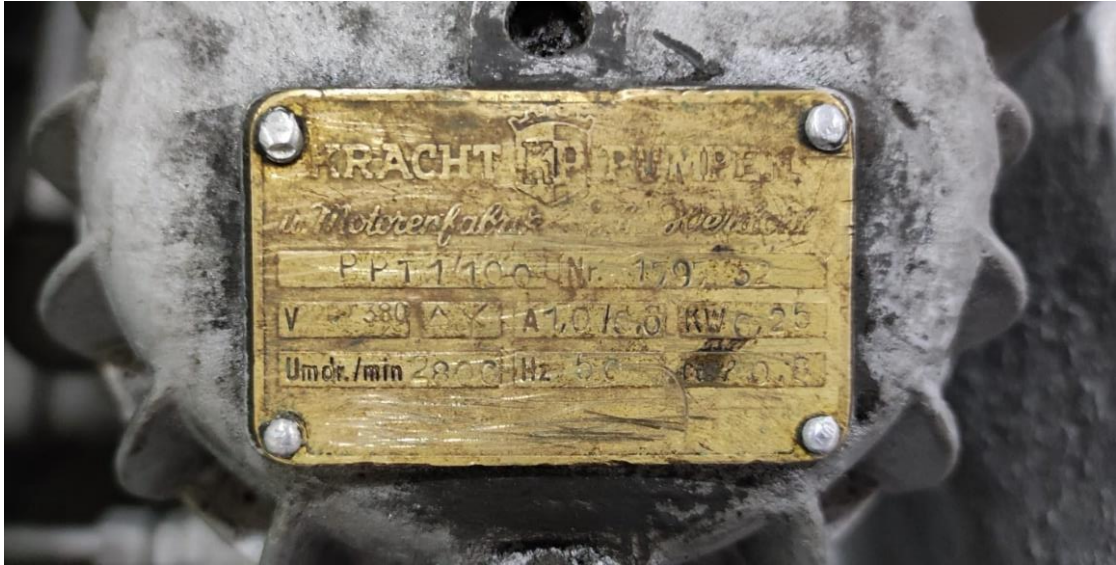 KRACHT KP PUMPEN
u. Motorenfabrik
PPT 1/100 Nr.
V 380 A 1,0/0,6 KW 0,25
Umdr./min 2800 Hz 50 0,8